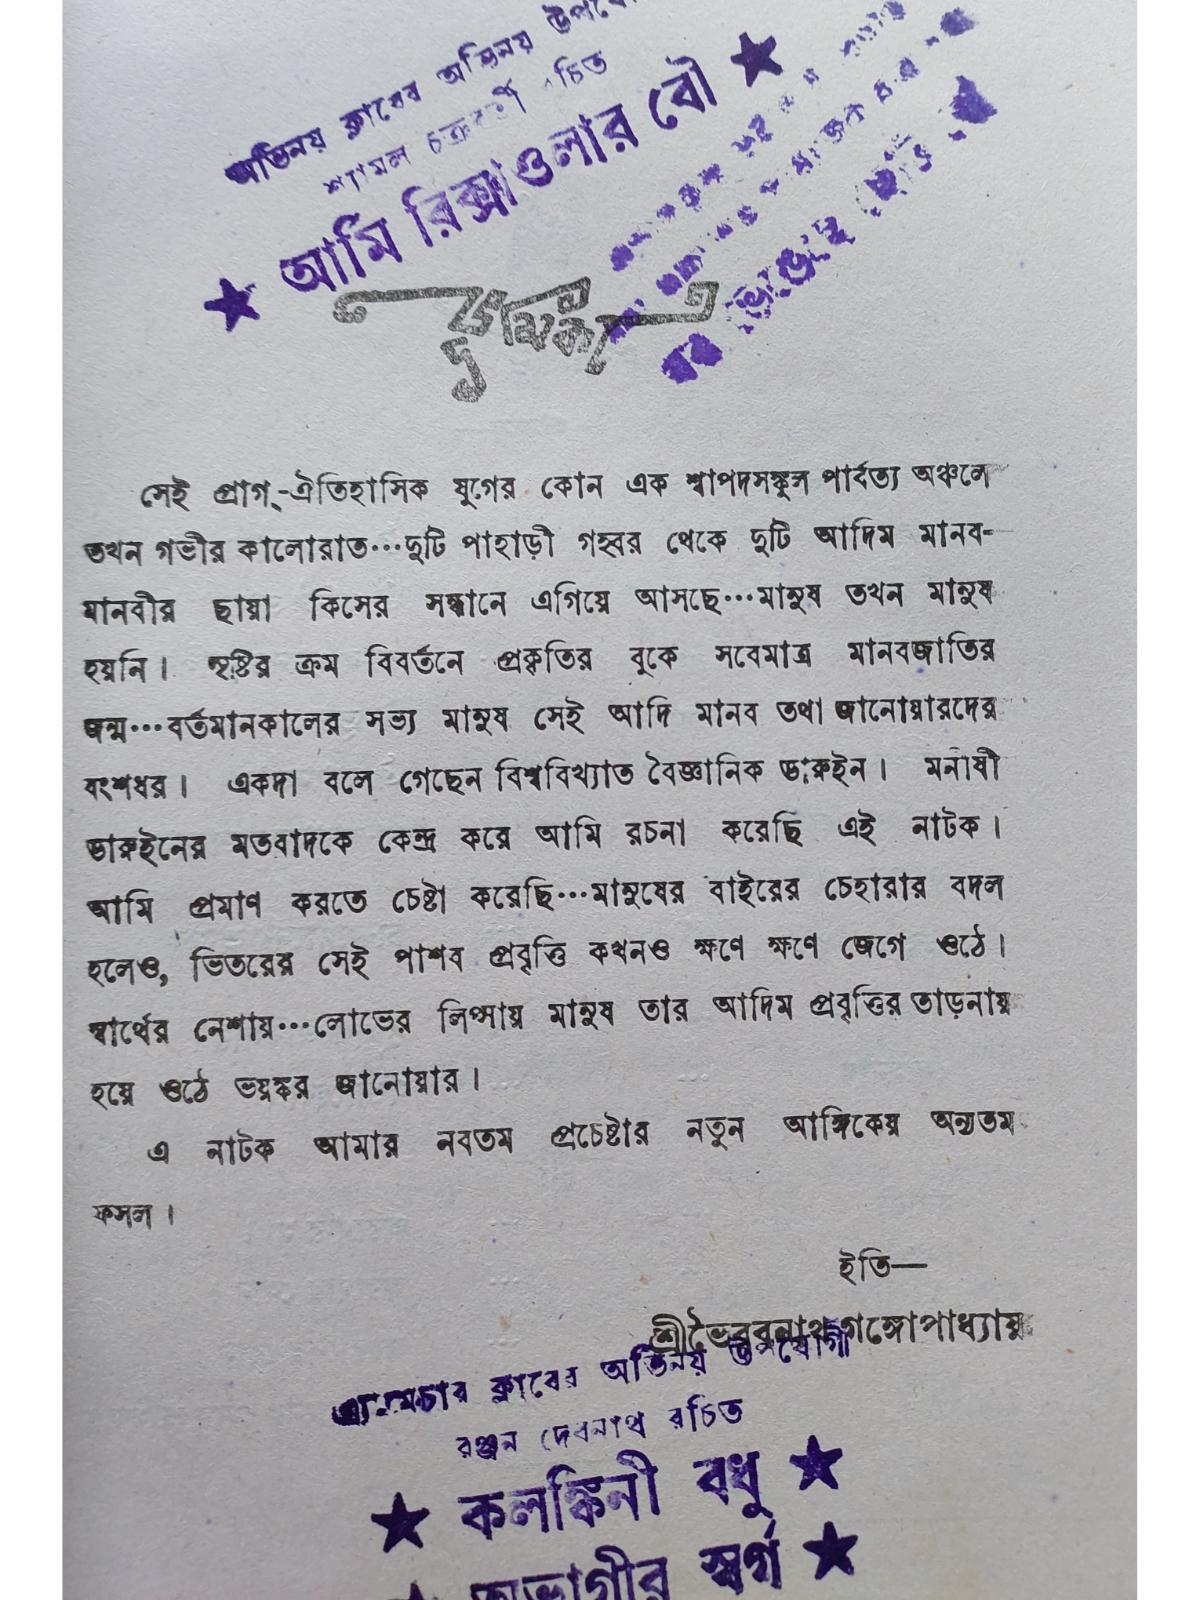 অভিনয় ক্লাবের অভিনয়
শ্যামল চক্রবর্তী রচিত
★ আমি রিক্সাওলার বৌ ★
ভূমিকা
সেই প্রাগ্-ঐতিহাসিক যুগের কোন এক শ্বাপদসঙ্কুল পার্বত্য অঞ্চলে
তখন গভীর কালোরাত···দুটি পাহাড়ী গহ্বর থেকে দুটি আদিম মানব-
মানবীর ছায়া কিসের সন্ধানে এগিয়ে আসছে···মানুষ তখন মানুষ
হয়নি। সৃষ্টির ক্রম বিবর্তনে প্রকৃতির বুকে সবেমাত্র মানবজাতির
জন্ম···বর্তমানকালের সভ্য মানুষ সেই আদি মানব তথা জানোয়ারদের
বংশধর। একদা বলে গেছেন বিশ্ববিখ্যাত বৈজ্ঞানিক ডারুইন। মনীষী
ডারুইনের মতবাদকে কেন্দ্র করে আমি রচনা করেছি এই নাটক।
আমি প্রমাণ করতে চেষ্টা করেছি···মানুষের বাইরের চেহারার বদল
হলেও, ভিতরের সেই পাশব প্রবৃত্তি কখনও ক্ষণে ক্ষণে জেগে ওঠে।
স্বার্থের নেশায়···লোভের লিপ্সায় মানুষ তার আদিম প্রবৃত্তির তাড়নায়
হয়ে ওঠে ভয়ঙ্কর জানোয়ার।
এ নাটক আমার নবতম প্রচেষ্টার নতুন আঙ্গিকের অন্যতম
ফসল।
ইতি—
শ্রীভৈরবনাথ গঙ্গোপাধ্যায়
এ্যামেচার ক্লাবের অভিনয় উপযোগী
রঞ্জন দেবনাথ রচিত
★ কলঙ্কিনী বধু ★
অভাগীর স্বর্গ ★